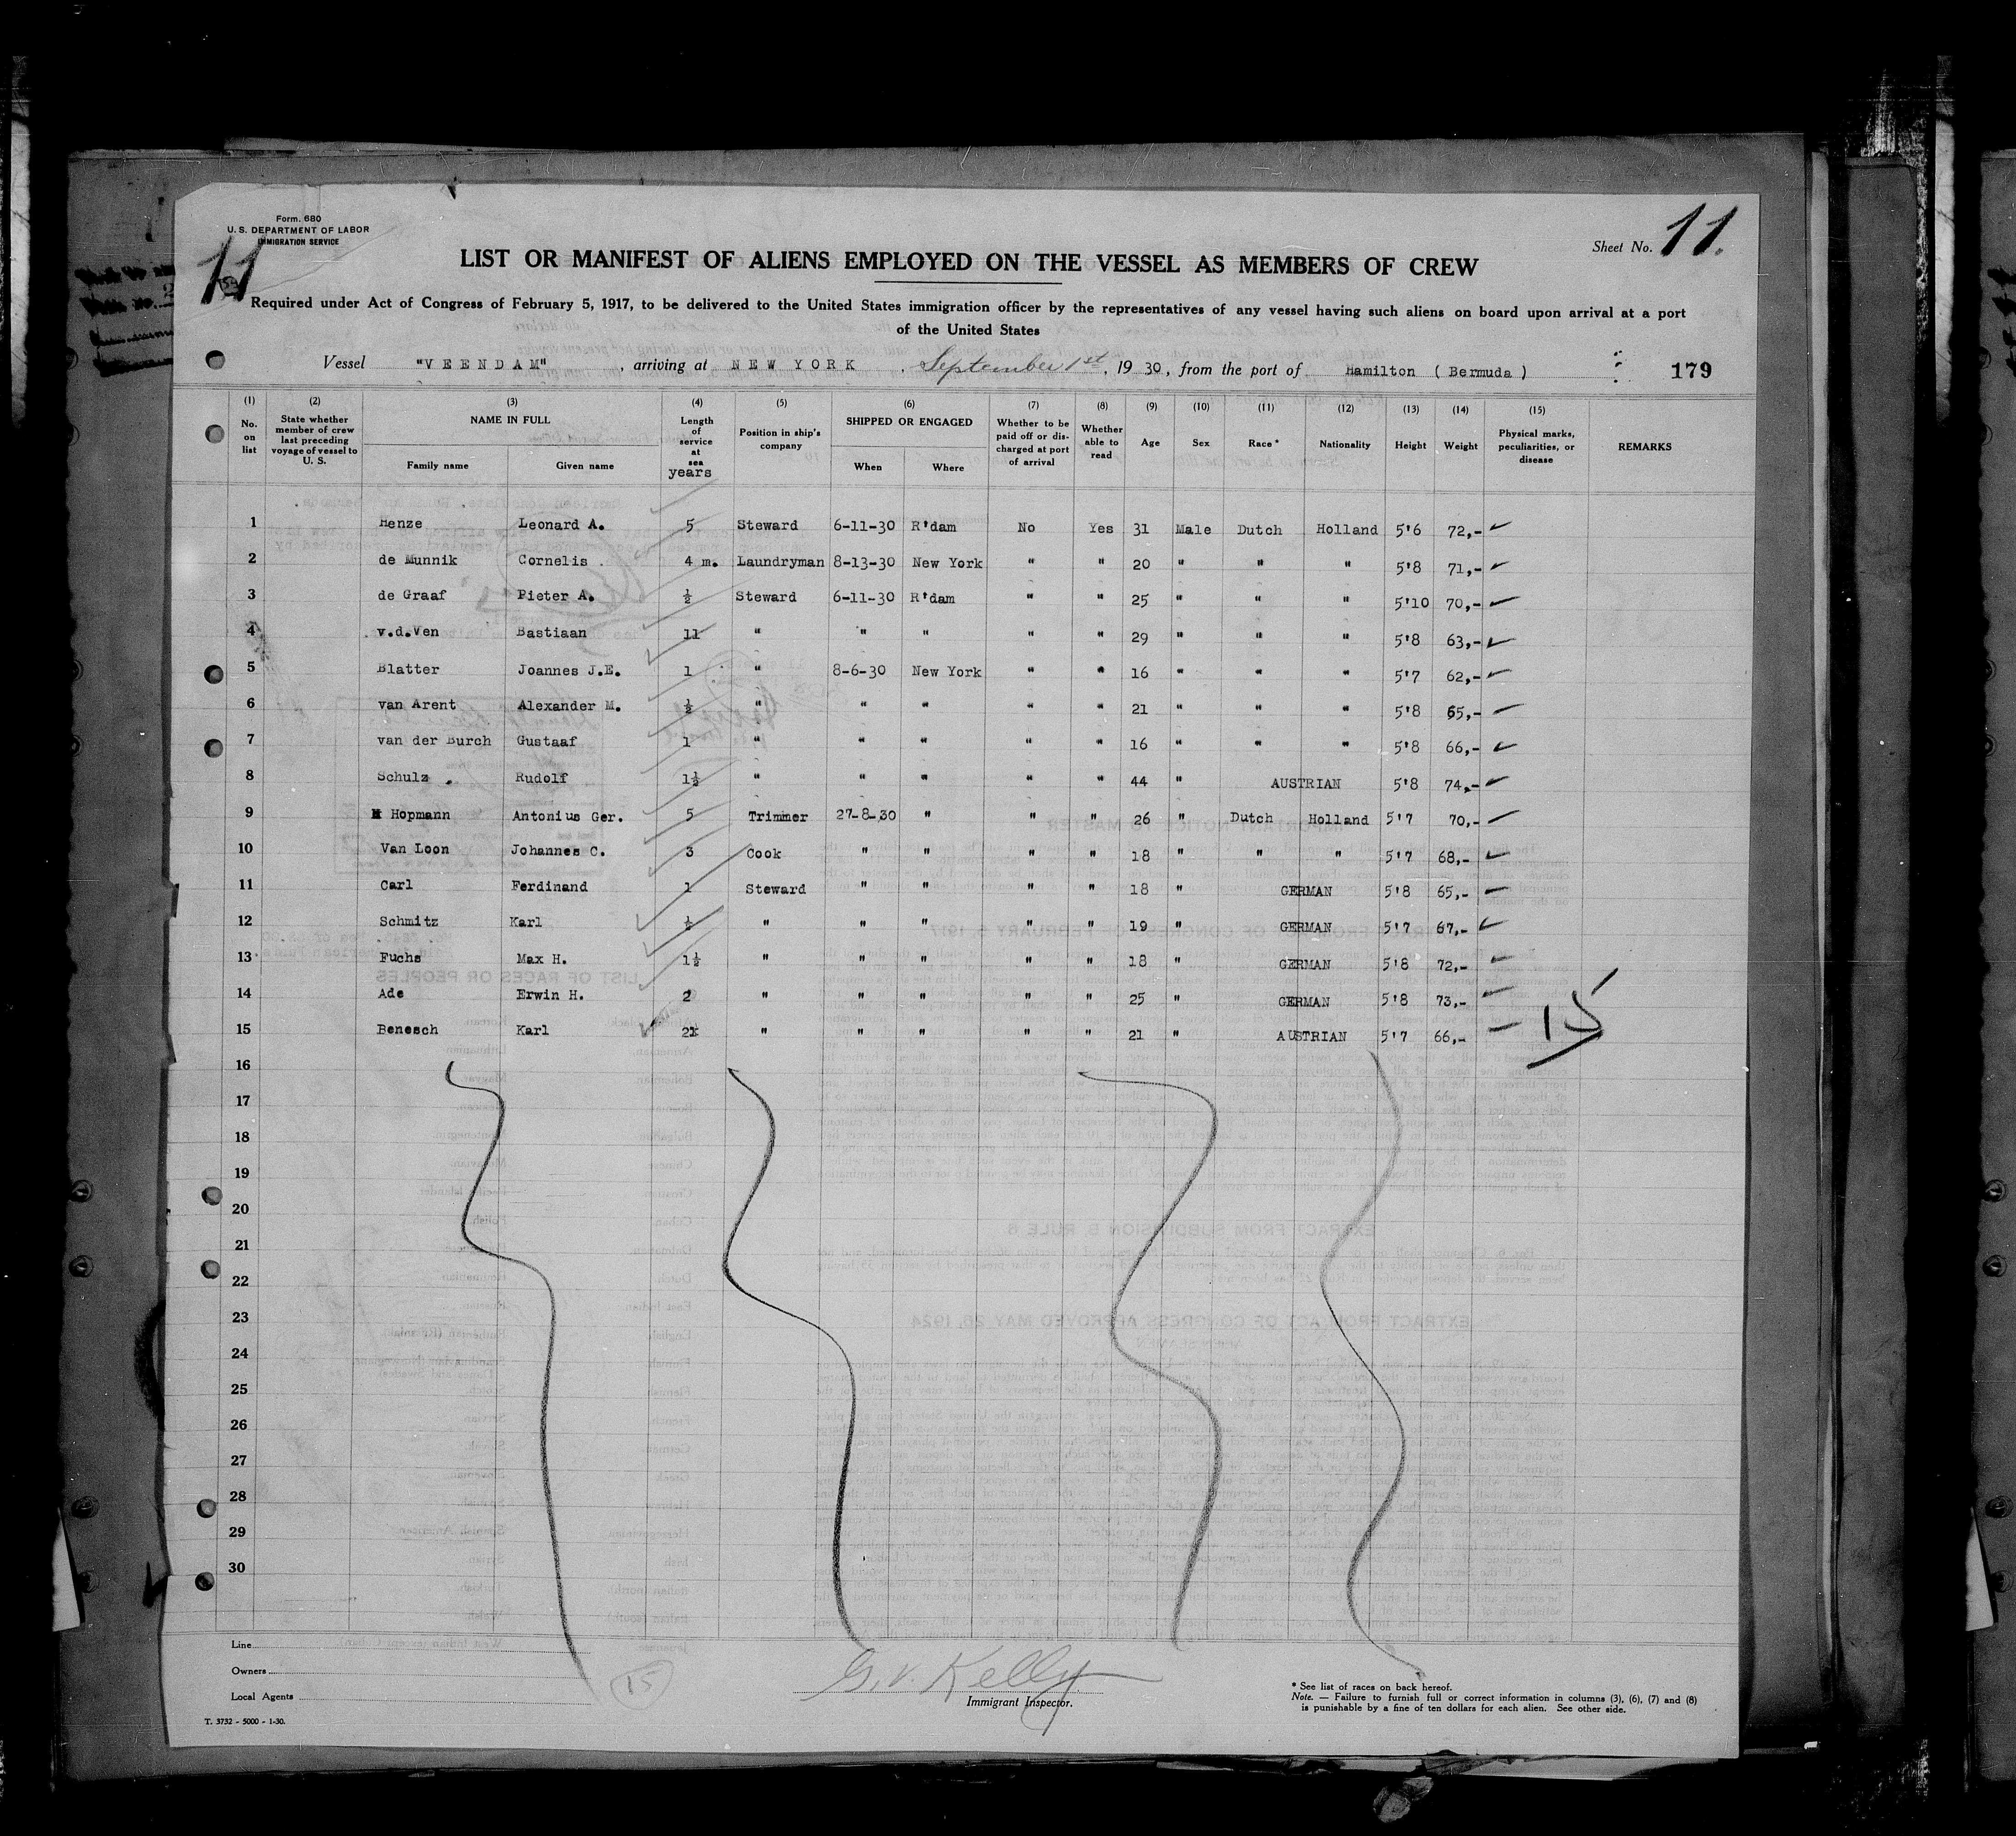 Form. 680
U. S. DEPARTMENT OF LABOR
IMMIGRATION SERVICE
11
Sheet No. 11.
LIST OR MANIFEST OF ALIENS EMPLOYED ON THE VESSEL AS MEMBERS OF CREW
Required under Act of Congress of February 5, 1917, to be delivered to the United States immigration officer by the representatives of any vessel having such aliens on board upon arrival at a port
of the United States
Vessel "VEENDAM", arriving at NEW YORK. September 1st, 1930, from the port of Hamilton ( Bermuda ) 179
(1) No. on list (2) State whether member of crew last preceding voyage of vessel to U. S. (3) NAME IN FULL Family name Given name (4) Length of service at sea years (5) Position in ship's company (6) SHIPPED OR ENGAGED When Where (7) Whether to be paid off or discharged at port of arrival (8) Whether able to read (9) Age (10) Sex (11) Race * (12) Nationality (13) Height (14) Weight (15) Physical marks, peculiarities, or disease REMARKS
1 Henze Leonard A. 5 Steward 6-11-30 R'dam No Yes 31 Male Dutch Holland 5'6 72,-
2 de Munnik Cornelis 4 m. Laundryman 8-13-30 New York " " 20 " " " 5'8 71,-
3 de Graaf Pieter A. ½ Steward 6-11-30 R'dam " " 25 " " " 5'10 70,-
4 v.d.Ven Bastiaan 11 " " " " " 29 " " " 5'8 63,-
5 Blatter Joannes J.E. 1 " 8-6-30 New York " " 16 " " " 5'7 62,-
6 van Arent Alexander M. ½ " " " " " 21 " " " 5'8 65,-
7 van der Burch Gustaaf 1 " " " " " 16 " " " 5'8 66,-
8 Schulz Rudolf 1½ " " " " " 44 " AUSTRIAN 5'8 74,-
9 Hopmann Antonius Ger. 5 Trimmer 27-8-30 " " " 26 " Dutch Holland 5'7 70,-
10 Van Loon Johannes C. 3 Cook " " " " 18 " " " 5'7 68,-
11 Carl Ferdinand 1 Steward " " " " 18 " GERMAN 5'8 65,-
12 Schmitz Karl ½ " " " " " 19 " GERMAN 5'7 67,-
13 Fuchs Max H. 1½ " " " " " 18 " GERMAN 5'8 72,-
14 Ade Erwin H. 2 " " " " " 25 " GERMAN 5'8 73,-
15 Benesch Karl 2½ " " " " " 21 " AUSTRIAN 5'7 66,- 15
16
17
18
19
20
21
22
23
24
25
26
27
28
29
30
Line
Owners
Local Agents
T. 3732 - 5000 - 1-30.
15
G. V. Kelly
Immigrant Inspector.
* See list of races on back hereof.
Note. — Failure to furnish full or correct information in columns (3), (6), (7) and (8)
is punishable by a fine of ten dollars for each alien. See other side.